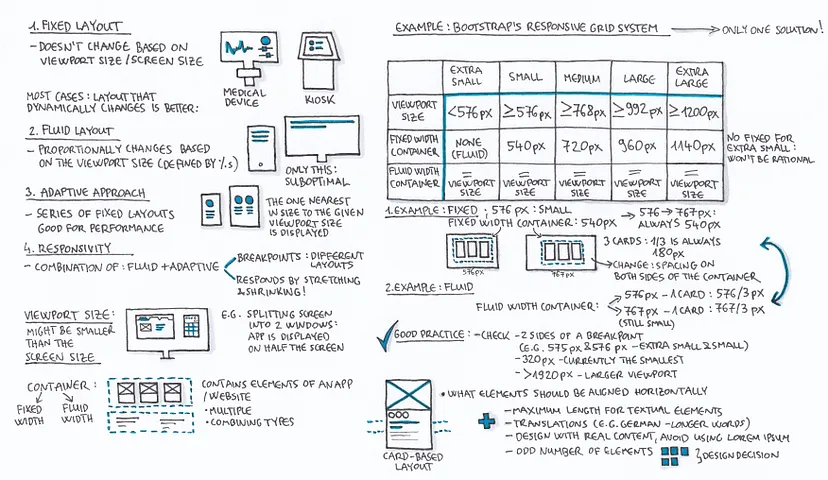 1. FIXED LAYOUT
- DOESN'T CHANGE BASED ON
VIEWPORT SIZE / SCREEN SIZE
MEDICAL
DEVICE
KIOSK
MOST CASES: LAYOUT THAT
DYNAMICALLY CHANGES IS BETTER:
2. FLUID LAYOUT
- PROPORTIONALLY CHANGES BASED
ON THE VIEWPORT SIZE (DEFINED BY %.S)
ONLY THIS:
SUBOPTIMAL
3. ADAPTIVE APPROACH
- SERIES OF FIXED LAYOUTS
GOOD FOR PERFORMANCE
THE ONE NEAREST
IN SIZE TO THE GIVEN
VIEWPORT SIZE
IS DISPLAYED
4. RESPONSIVITY
- COMBINATION OF: FLUID + ADAPTIVE
BREAKPOINTS: DIFFERENT
LAYOUTS
RESPONDS BY STRETCHING
& SHRINKING!
VIEWPORT SIZE:
MIGHT BE SMALLER
THAN THE
SCREEN SIZE
E.G. SPLITTING SCREEN
INTO 2 WINDOWS:
APP IS DISPLAYED
ON HALF THE SCREEN
CONTAINER:
FIXED
WIDTH
FLUID
WIDTH
CONTAINS ELEMENTS OF AN APP
/ WEBSITE
• MULTIPLE
• COMBINING TYPES
EXAMPLE: BOOTSTRAP'S RESPONSIVE GRID SYSTEM → ONLY ONE SOLUTION!
EXTRA SMALL SMALL MEDIUM LARGE EXTRA LARGE
VIEWPORT SIZE <576px ≥576px ≥768px ≥992px ≥1200px
FIXED WIDTH CONTAINER NONE (FLUID) 540px 720px 960px 1140px
FLUID WIDTH CONTAINER = VIEWPORT SIZE = VIEWPORT SIZE = VIEWPORT SIZE = VIEWPORT SIZE = VIEWPORT SIZE
NO FIXED FOR
EXTRA SMALL:
WON'T BE RATIONAL
1. EXAMPLE: FIXED; 576 px: SMALL
FIXED WIDTH CONTAINER: 540px
→ 576 → 767px:
ALWAYS 540px
576px
767px
3 CARDS: 1/3 IS ALWAYS
180px
CHANGE: SPACING ON
BOTH SIDES OF THE CONTAINER
2. EXAMPLE: FLUID
FLUID WIDTH CONTAINER:
576px - 1 CARD: 576/3 px
767px - 1 CARD: 767/3 px
(STILL SMALL)
GOOD PRACTICE: - CHECK - 2 SIDES OF A BREAKPOINT
(E.G. 575px & 576px - EXTRA SMALL & SMALL)
- 320px - CURRENTLY THE SMALLEST
- >1920px - LARGER VIEWPORT
CARD-BASED
LAYOUT
• WHAT ELEMENTS SHOULD BE ALIGNED HORIZONTALLY
- MAXIMUM LENGTH FOR TEXTUAL ELEMENTS
- TRANSLATIONS (E.G. GERMAN - LONGER WORDS)
- DESIGN WITH REAL CONTENT, AVOID USING LOREM IPSUM
- ODD NUMBER OF ELEMENTS } DESIGN DECISION